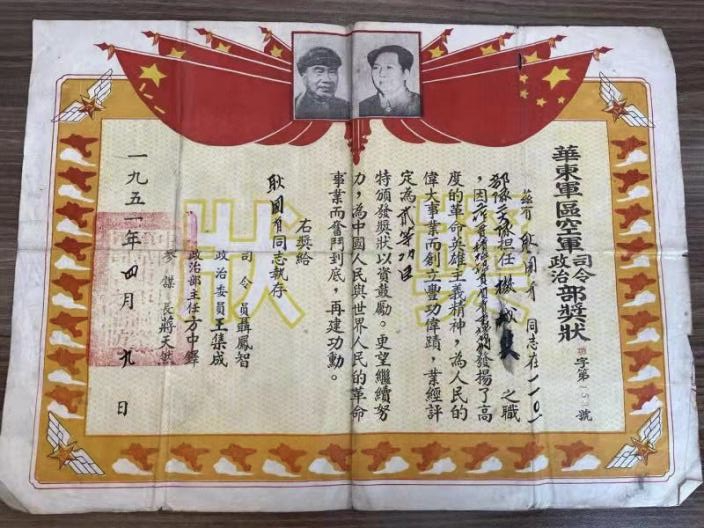 華東軍區空軍司令政治部獎狀
字第 號
茲有耿開育同志在一一〇一
部隊 擔任機械員之職
,因工作 發揚了高
度的革命英雄主義精神,為人民的
偉大事業而創立豐功偉蹟,業經評
定為貳等功臣
特頒發獎狀以資鼓勵。更望繼續努
力,為中國人民與世界人民的革命
事業而奮鬥到底,再建功勳。
右獎給
耿開育同志執存
司令員聶鳳智
政治委員王集成
政治部主任方中鐸
參謀長蔣天然
一九五一年四月九日
獎狀